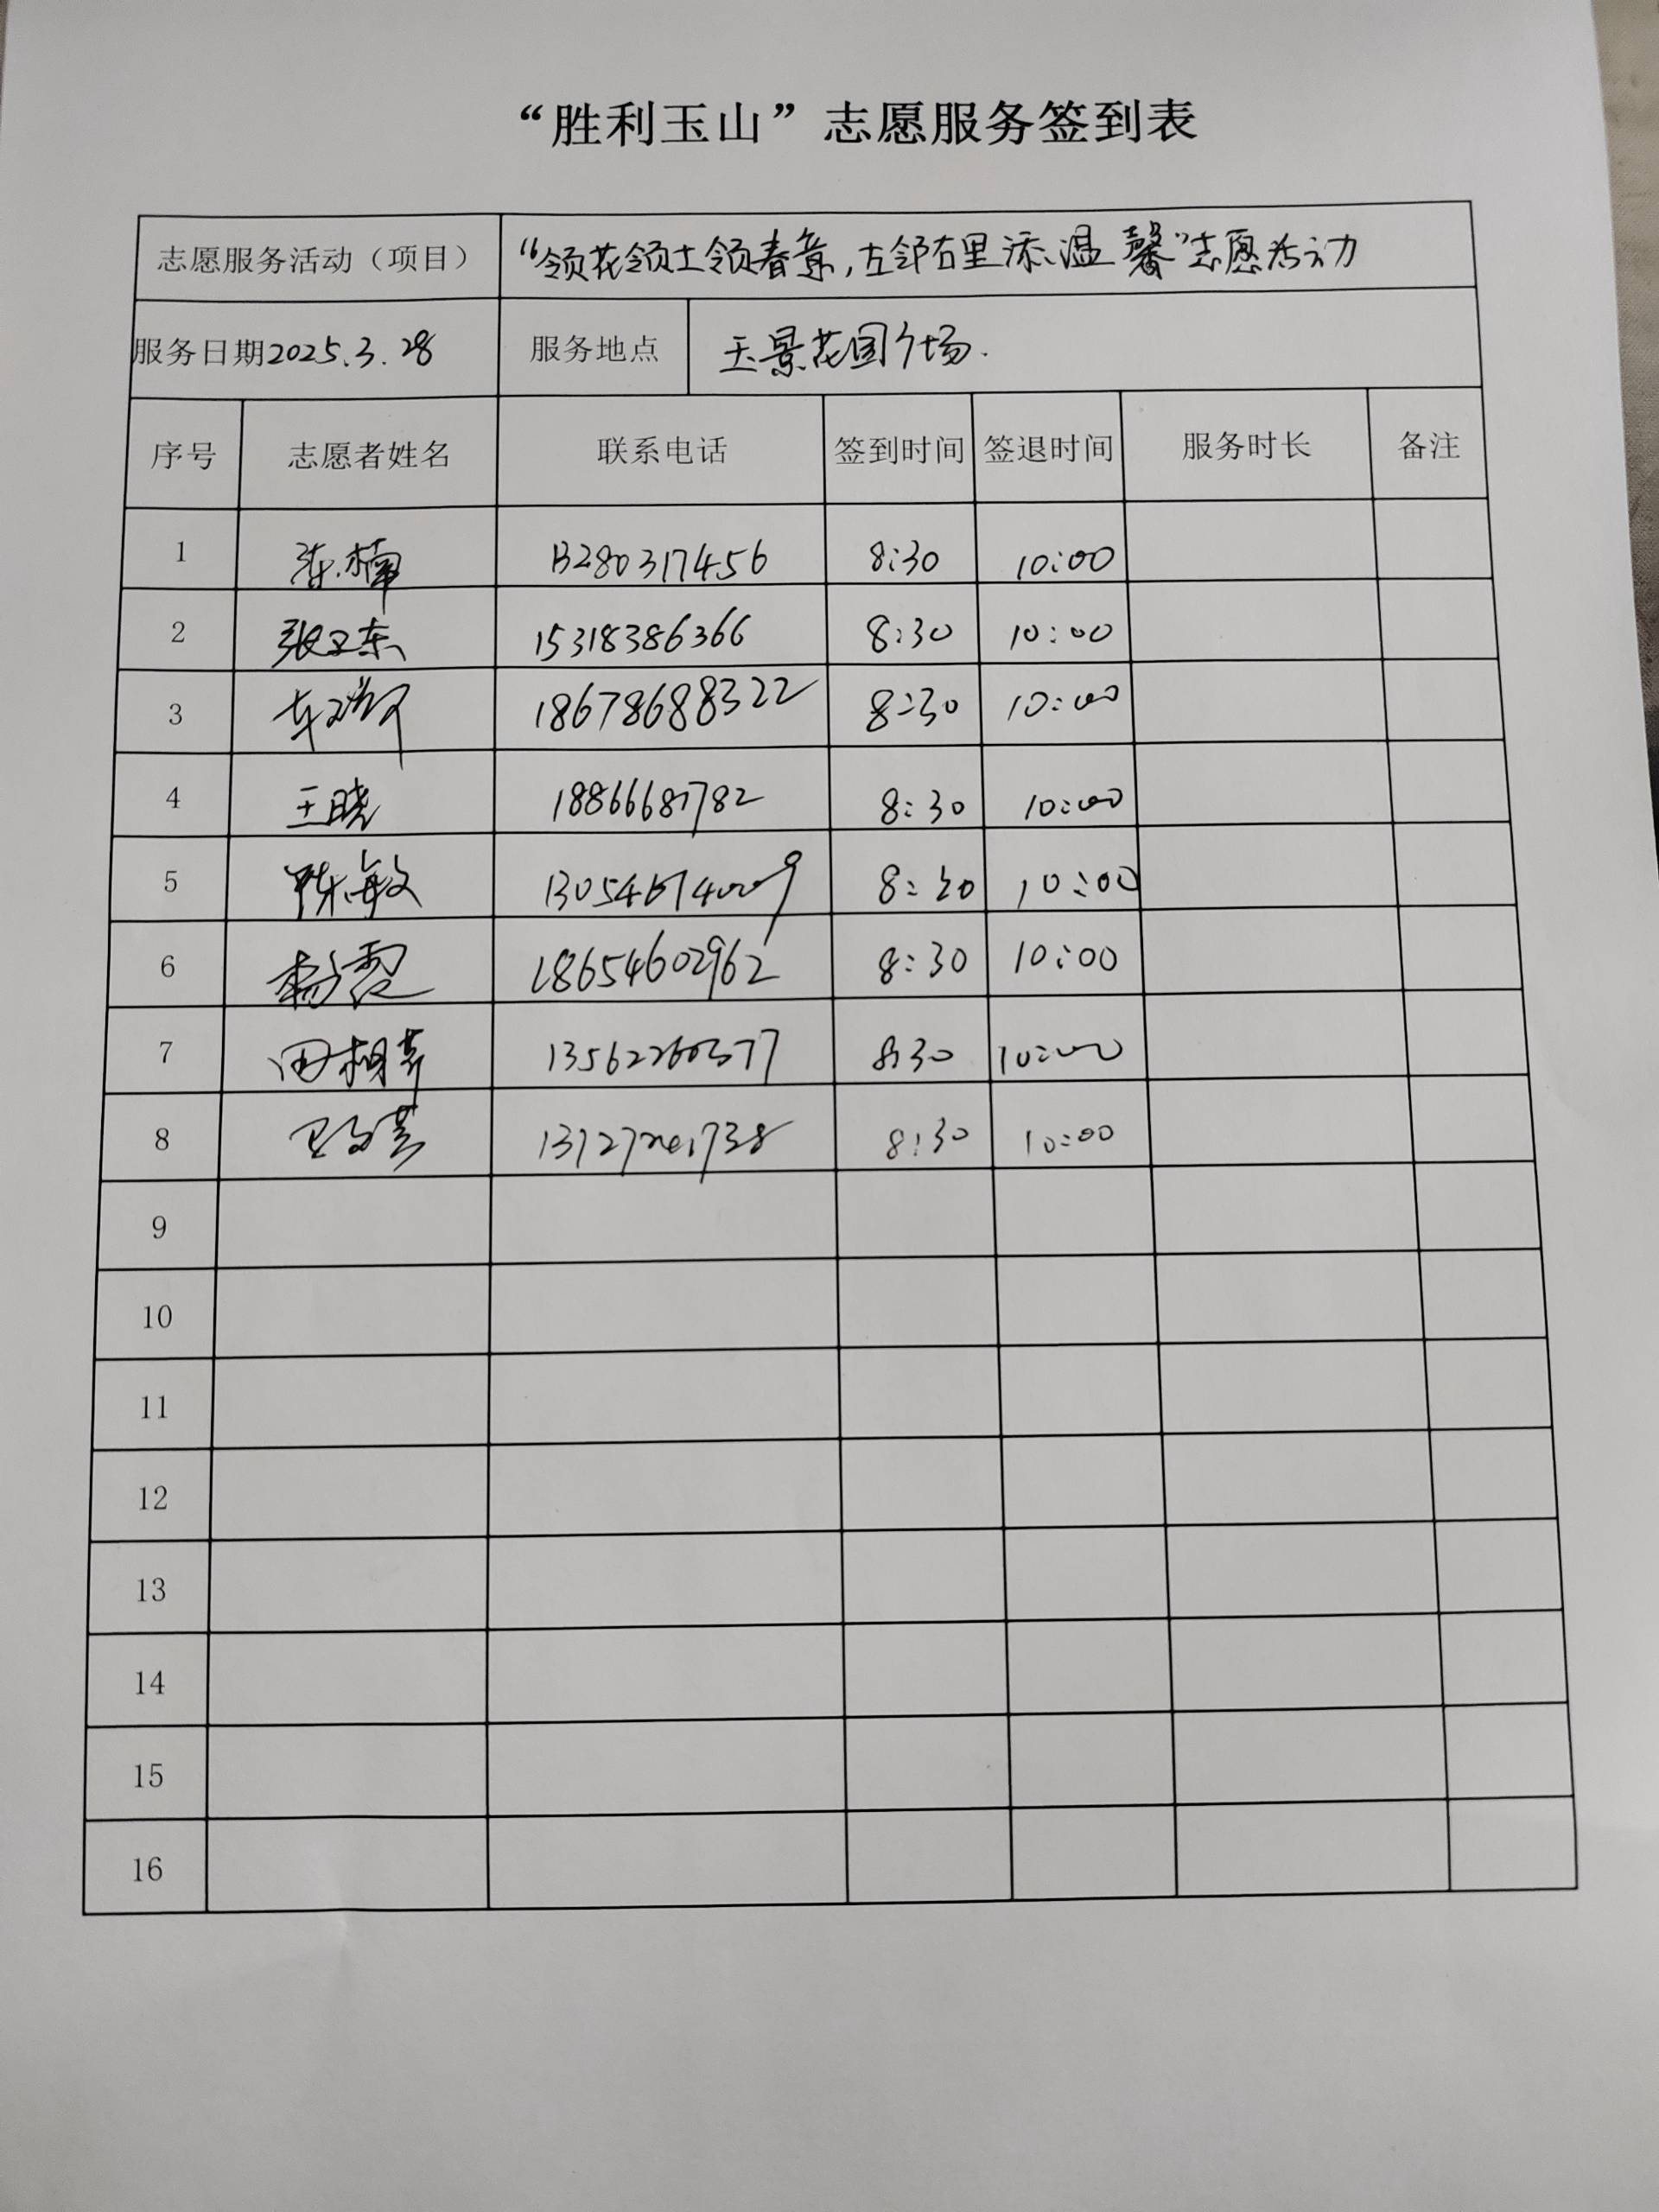 “胜利玉山”志愿服务签到表
志愿服务活动（项目） “领花领土领春意，左邻右里添温馨”志愿活动
服务日期2025.3.28 服务地点 玉景花园广场.
序号 志愿者姓名 联系电话 签到时间 签退时间 服务时长 备注
1 13280317456 8:30 10:00
2 张卫东 15318386366 8:30 10:00
3 18678688322 8:30 10:00
4 王晓 8:30 10:00
5 陈海敏 8:30 10:00
6 杨霞 18654602962 8:30 10:00
7 田相芹 8:30 10:00
8 8:30 10:00
9
10
11
12
13
14
15
16